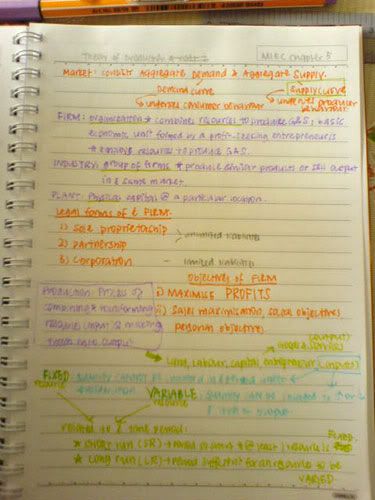 Theory of production & costs
MIEC chapter 5
MARKET: consists Aggregate Demand & Aggregate Supply.
Demand curve
Supply curve
↳ underlies consumer behaviour
↳ underlies producer behaviour
FIRM: organisation * combines resources to produce G&S; basic
economic unit formed by a profit-seeking entrepreneur
* employ resources to produce G&S.
INDUSTRY: group of firms * produce similar products or sell output
in same market.
PLANT: Physical capital @ a particular location.
Legal forms of FIRM
1) Sole proprietorship
2) Partnership
unlimited liabilities
3) Corporation - limited liabilities
Objectives of FIRM
i) MAXIMISE PROFITS
PRODUCTION: Process of
combining & transforming
resources (input)
them into output
ii) Sales maximisation, social objectives
personal objectives
(output)
goods & services
Land, Labour, capital, entrepreneur (inputs)
FIXED: quantity cannot be
resource
VARIABLE: quantity can be
resource
related to time period:
* Short run (SR) → period at least 1 resource is FIXED
* Long run (LR) → period sufficient for all resource to be
VARIED